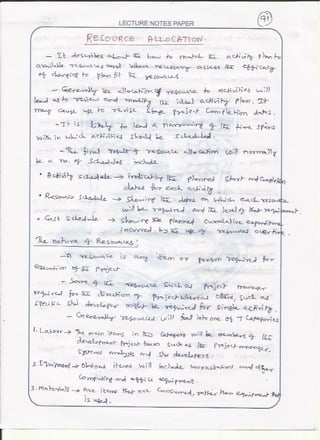 LECTURE NOTES PAPER
91
RESOURCE ALLOCATION
- It describes about the how to match the activity plan to
available resources and where necessary assess the efficacy
of changing the plan fit the resources.
- Generally the allocation of resource to activities will
lead us to review and modify the ideal activity plan. It
may cause us to revise stage project completion dates.
- It is likely to lead a narrowing of the time spans
within which activities should be scheduled.
- The final result of resource allocation will normally
be a no. of schedules include
• Activity schedule → indicating the planned start and completion
dates for each activity
• Resource schedule → showing the dates on which each resource
will be required and the level of that requirement
• Cost schedule → showing the planned cumulative expenditure
incurred by the use of resources over time.
The nature of Resources:
- A resource is any item or person required for
execution of the project.
- Some of the resource such as project manager
required for the duration of project whereas other, such as
specific s/w developer might be required for single activity.
- Generally resources will fall into one of 7 categories
1. Labour → The main items in this category will be members of the
development project team such as the project manager,
systems analysts and s/w developers.
2. Equipment → Obvious items will include workstation and other
computing and office equipment.
3. Materials → are items that are consumed, rather than equipment that
is used.